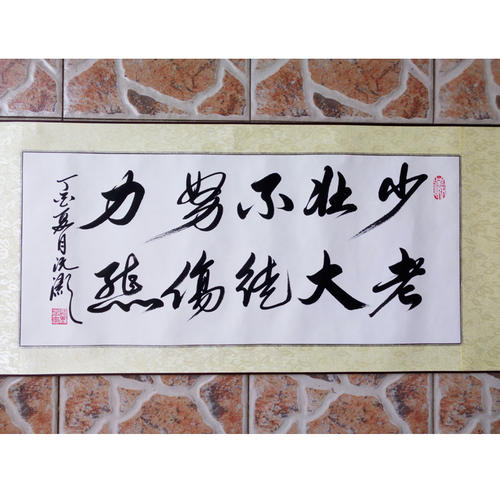 少壮不努力
老大徒傷悲
丁酉夏月沈